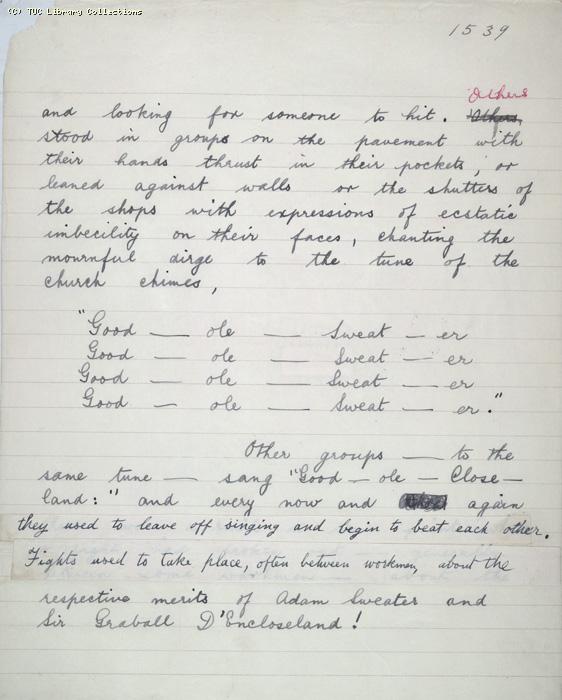 (C) TUC Library Collections
1539
Others
and looking for someone to hit. Others
stood in groups on the pavement with
their hands thrust in their pockets, or
leaned against walls or the shutters of
the shops with expressions of ecstatic
imbecility on their faces, chanting the
mournful dirge to the tune of the
church chimes,
"Good — ole — Sweat — er
Good — ole — Sweat — er
Good — ole — Sweat — er
Good — ole — Sweat — er."
Other groups — to the
same tune — sang "Good — ole — Close —
land:" and every now and again
they used to leave off singing and begin to beat each other.
Fights used to take place, often between workmen, about the
respective merits of Adam Sweater and
Sir Graball D'Encloseland!